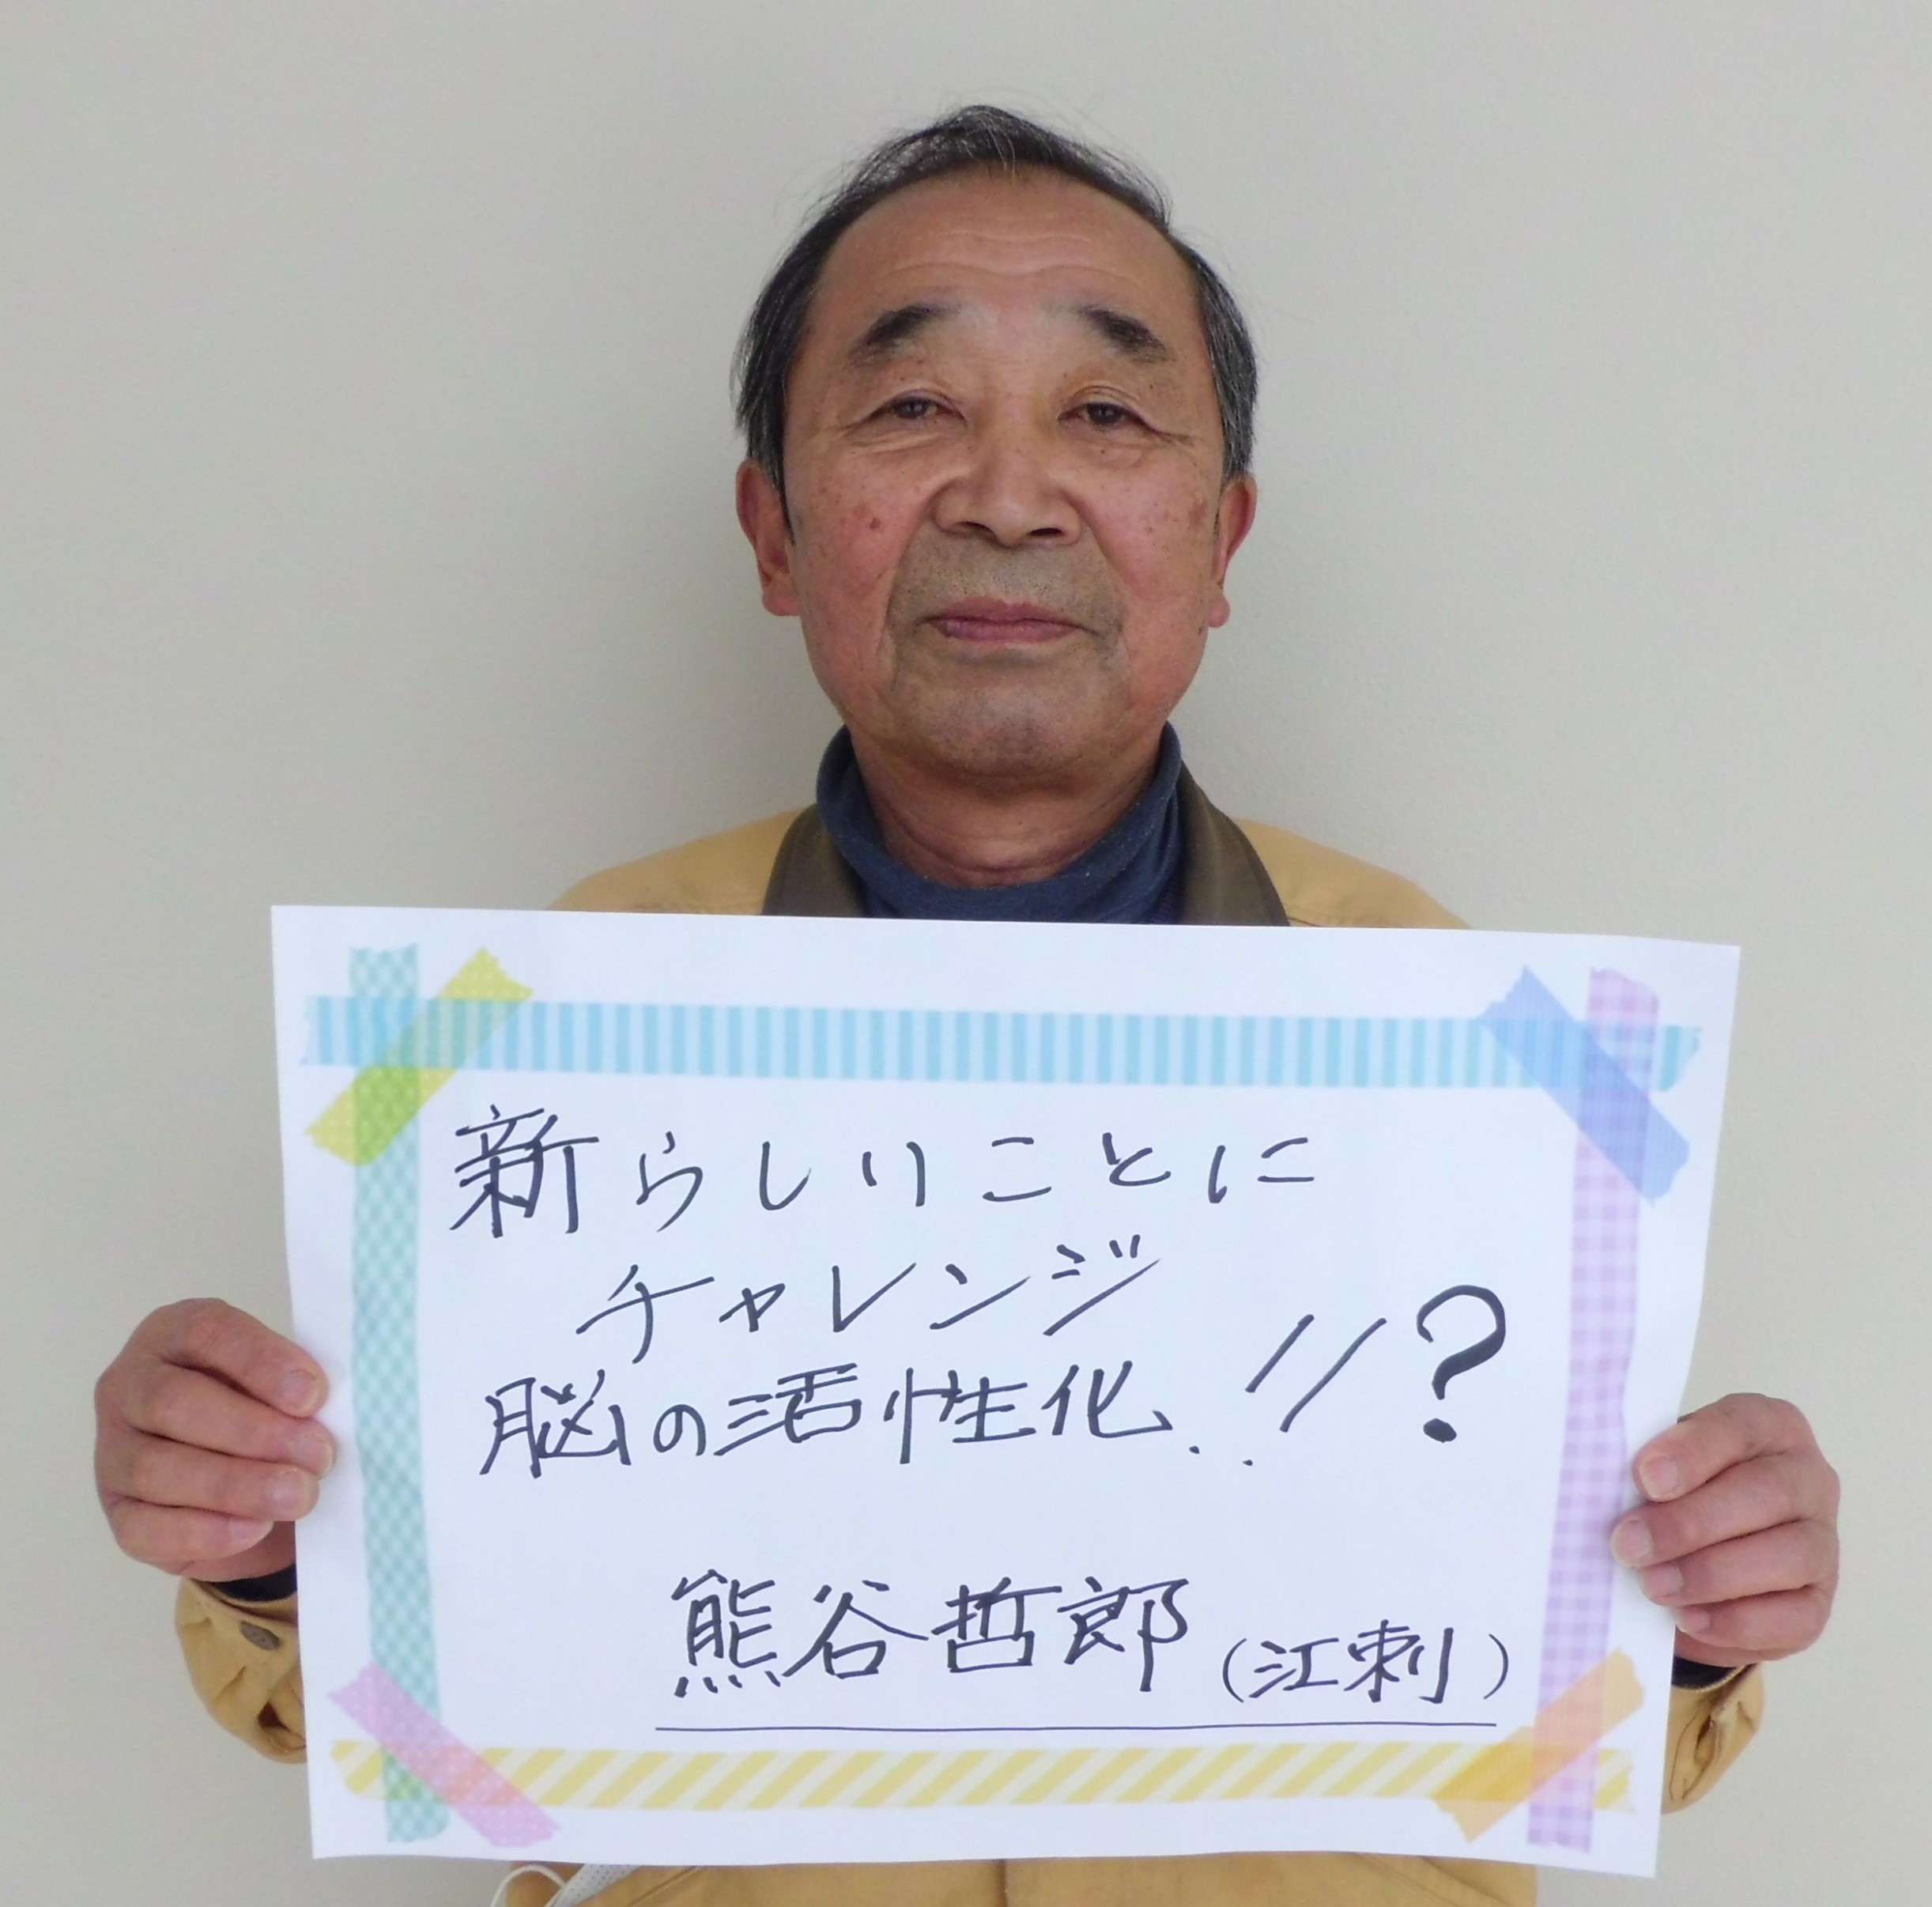 新らしいことに
チャレンジ
脳の活性化.!!?
熊谷哲郎(江刺)